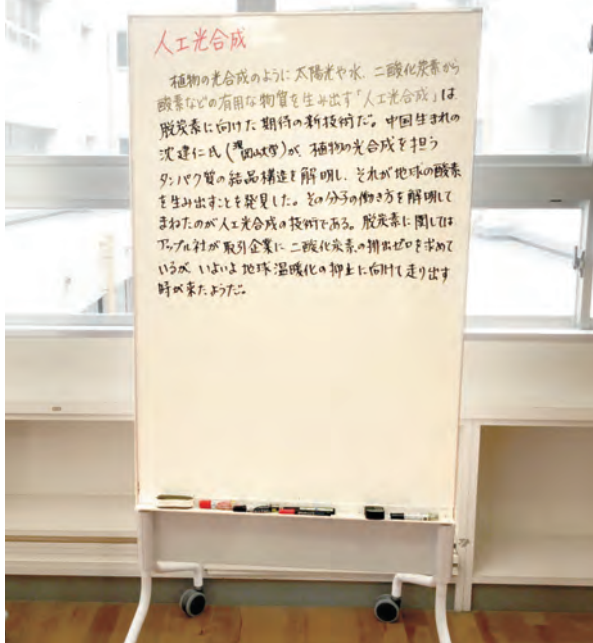 人工光合成
植物の光合成のように太陽光や水、二酸化炭素から
酸素などの有用な物質を生み出す「人工光合成」は
脱炭素に向けた期待の新技術だ。中国生まれの
沈建仁氏(現岡山大学)が、植物の光合成を担う
タンパク質の結晶構造を解明し、それが地球の酸素
を生み出すことを発見した。その分子の働き方を解明して
まねたのが人工光合成の技術である。脱炭素に関しては
アップル社が取引企業に二酸化炭素の排出ゼロを求めて
いるが、いよいよ地球温暖化の抑止に向けて走り出す
時が来たようだ。